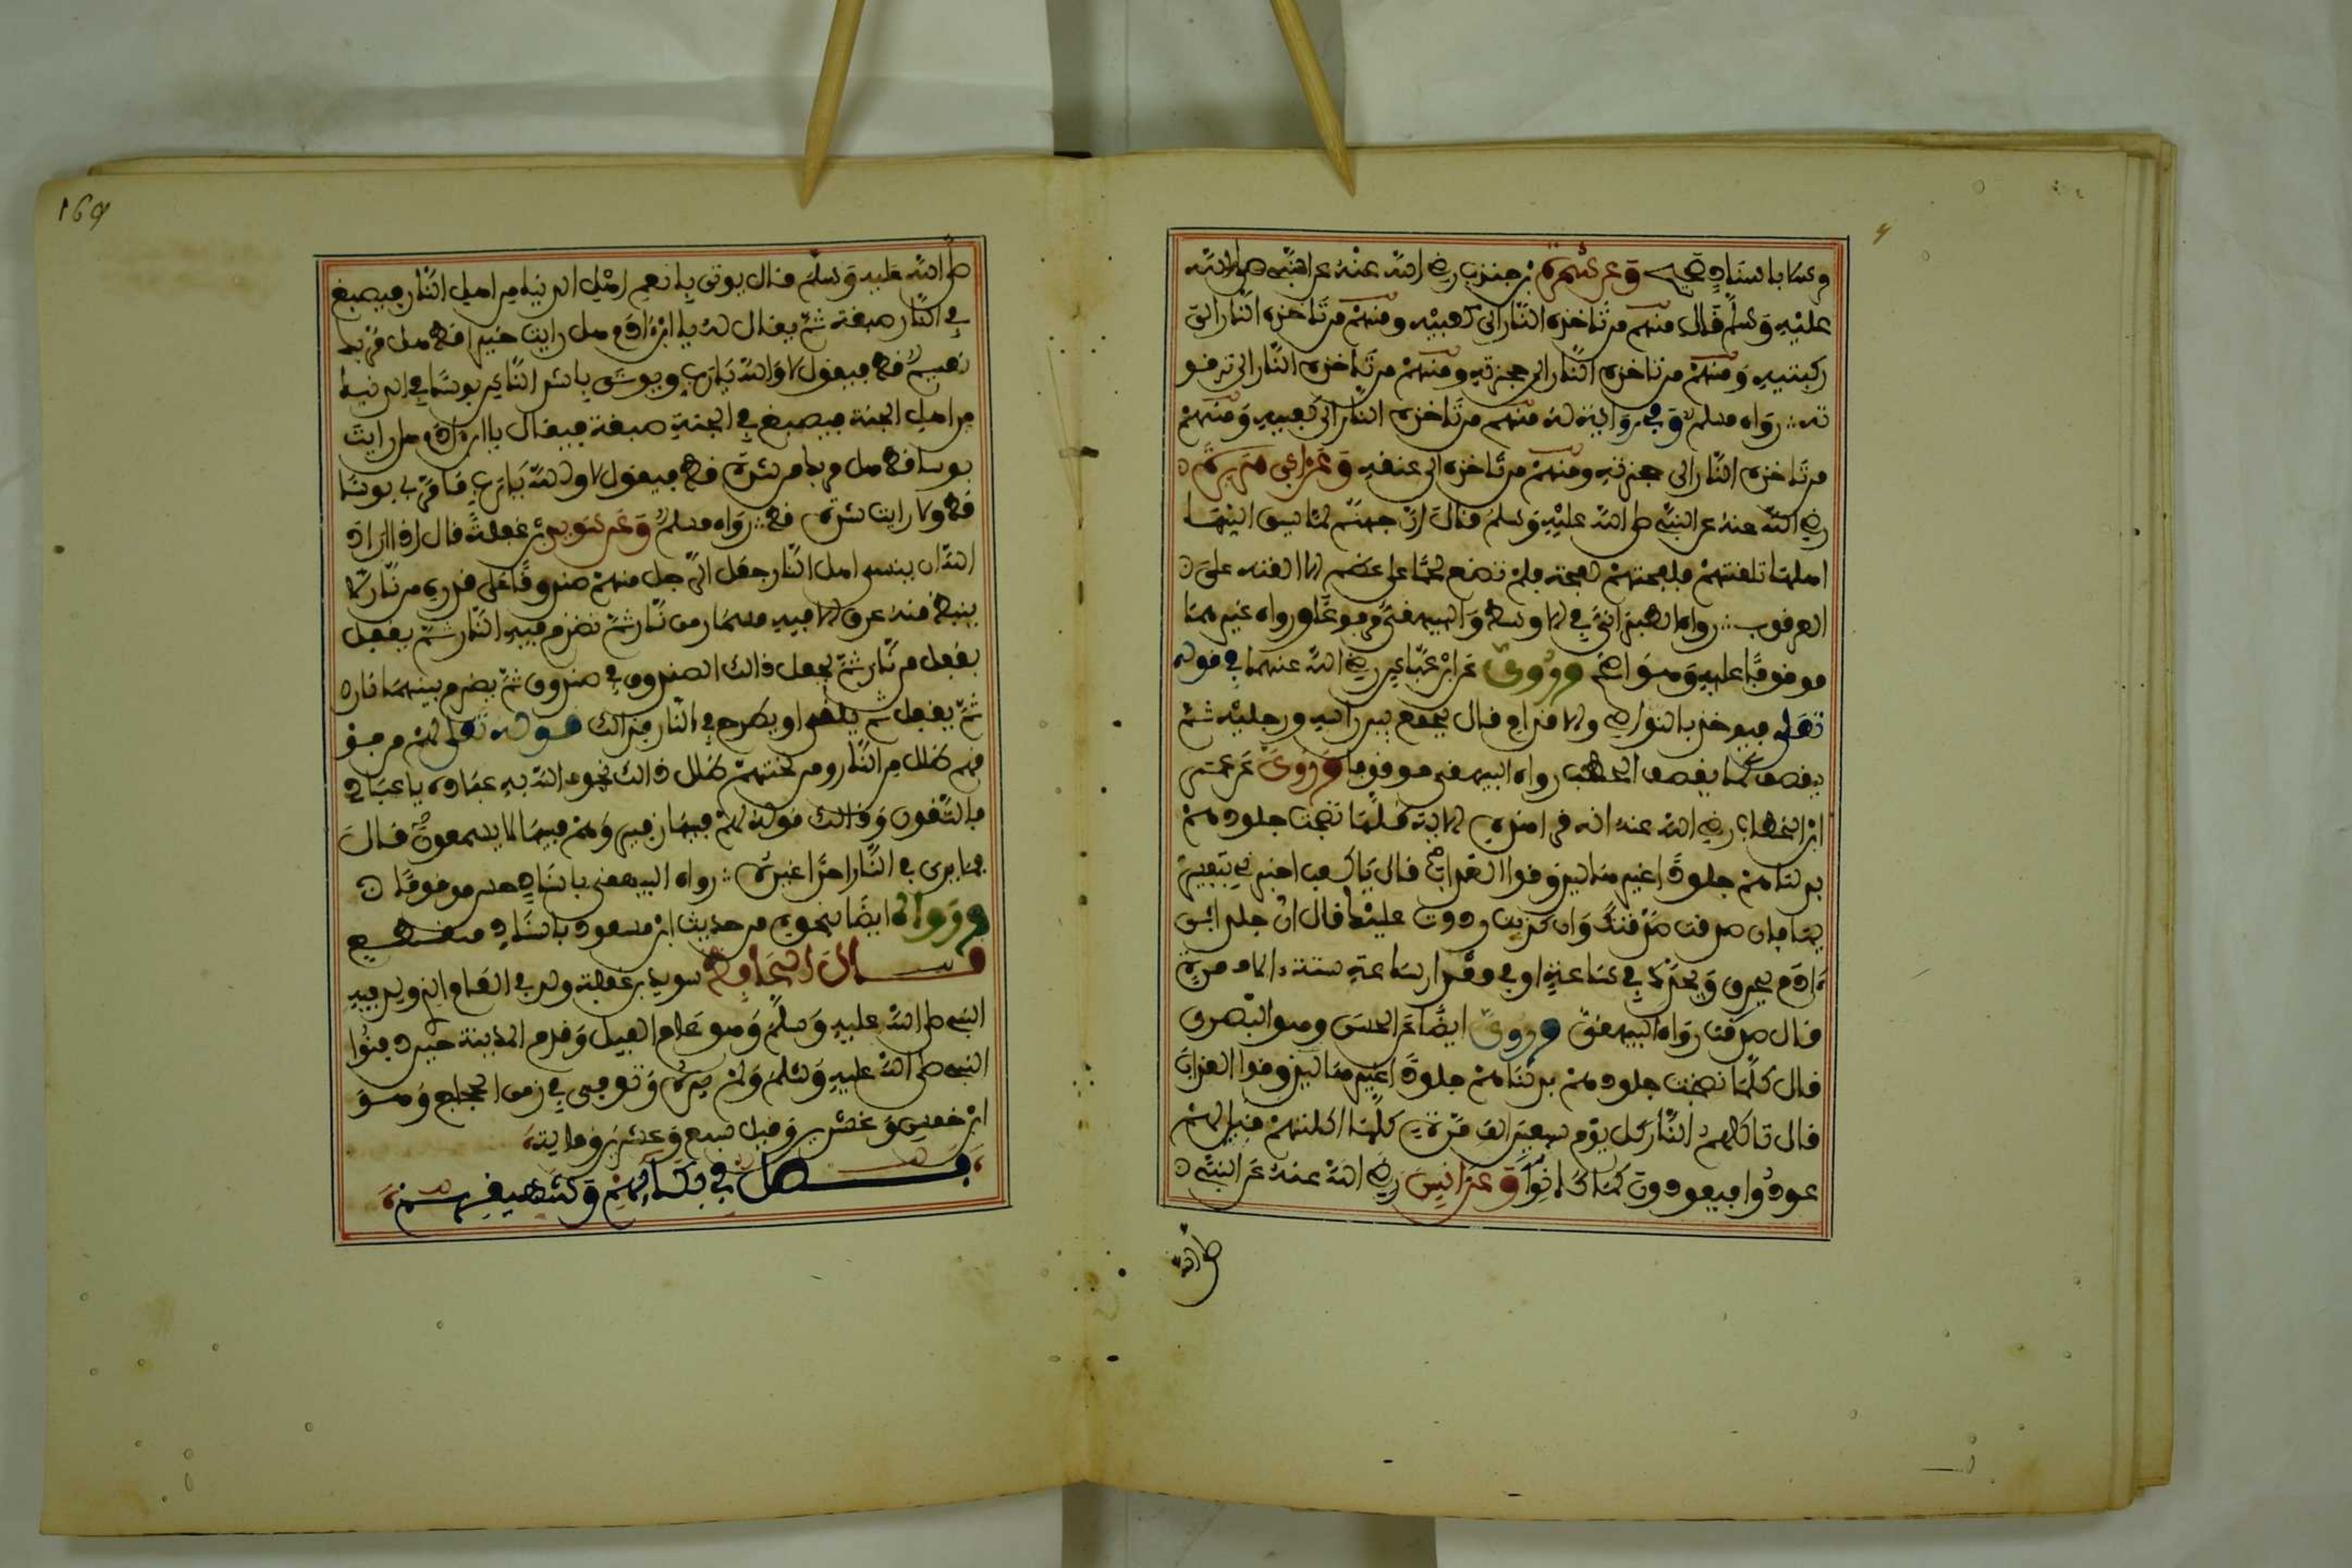 وغيرهما باسناد صحيح وعن سمرة بن جندب رضي الله عنه عن النبي صلى الله
عليه وسلم قال منهم من تاخذه النار الى كعبيه ومنهم من تاخذه النار الى
ركبتيه ومنهم من تاخذه النار الى حجزته ومنهم من تاخذه النار الى ترقو
ته رواه مسلم وفي رواية له منهم من تاخذه النار الى كعبيه ومنهم
من تاخذه النار الى حجزته ومنهم من تاخذه الى عنقه وعن ابي هريرة
رضي الله عنه عن النبي صلى الله عليه وسلم قال ان جهنم لما سيق اليها
اهلها تلقتهم فلفحتهم لفحة فلم تدع لحما على عظم الا القته على
العرقوب رواه الطبراني في الاوسط والبيهقي مرفوعا ورواه غيرهما
موقوفا عليه وهو اصح وروى عن ابن عباس رضي الله عنهما في قوله
تعلى فيوخذ بالنواصي والاقدام قال يجمع بين راسه ورجليه ثم
يقصف كما يقصف الحطب رواه البيهقي موقوفا وروى عن عمر
ابن الخطاب رضي الله عنه انه قرا هذه الاية كلما نضجت جلودهم
بدلناهم جلودا غيرها ليذوقوا العذاب قال يا كعب اخبرني بتفسيرها
فان صدقت صدقتك وان كذبت رددت عليك قال ان جلد ابن
ءادم يحرق ويجدد في ساعة او في مقدار ساعة ستة ءالاف مرة
قال صدقت رواه البيهقي وروى ايضا عن الحسن وهو البصري
قال كلما نضجت جلودهم بدلناهم جلودا غيرها ليذوقوا العذاب
قال تاكلهم النار كل يوم سبعين الف مرة كلما اكلتهم قيل لهم
عودوا فيعودون كما كانوا وعن انس رضي الله عنه عن النبي
صلى الله
169
صلى الله عليه وسلم قال يوتى بانعم اهل الدنيا من اهل النار فيصبغ
في النار صبغة ثم يقال له يا ابن ءادم هل رايت خيرا قط هل مر بك
نعيم قط فيقول لا والله يا رب ويوتى باشد الناس بوسا في الدنيا
من اهل الجنة فيصبغ في الجنة صبغة فيقال يا ابن ءادم هل رايت
بوسا قط هل مر بك من شدة قط فيقول لا والله يا رب ما مر بي بوسا
قط ولا رايت شدة قط رواه مسلم وعن سويد بن غفلة قال اذا اراد
الله ان ينسى اهل النار جعل للرجل منهم صندوقا على قدره من نار لا
ينبض منه عرق الا فيه مسمار من نار ثم تضرم فيه النار ثم يقفل
بقفل من نار ثم يجعل ذالك الصندوق في صندوق ثم يضرم بينهما نار
ثم يقفل ثم يلقى او يطرح في النار فذالك قوله تعلى لهم من فو
قهم ظلل من النار ومن تحتهم ظلل ذالك يخوف الله به عباده يا عباد
فاتقون وذالك قوله لهم فيها زفير وهم فيها لا يسمعون قال
فما يرى في النار احدا غيره رواه البيهقي باسناد حسن موقوفا
ورواه ايضا بنحوه من حديث ابن مسعود باسناد منقطع
قال الحافظ سويد بن غفلة ولد في العام الذي ولد فيه
النبي صلى الله عليه وسلم وهو عام الفيل وقدم المدينة حين دفنوا
النبي صلى الله عليه وسلم ولم يره وتوفي في زمن الحجاج وهو
ابن خمس وعشرين وقيل سبع وعشرين وماية
فصل في بكائهم وشهيقهم